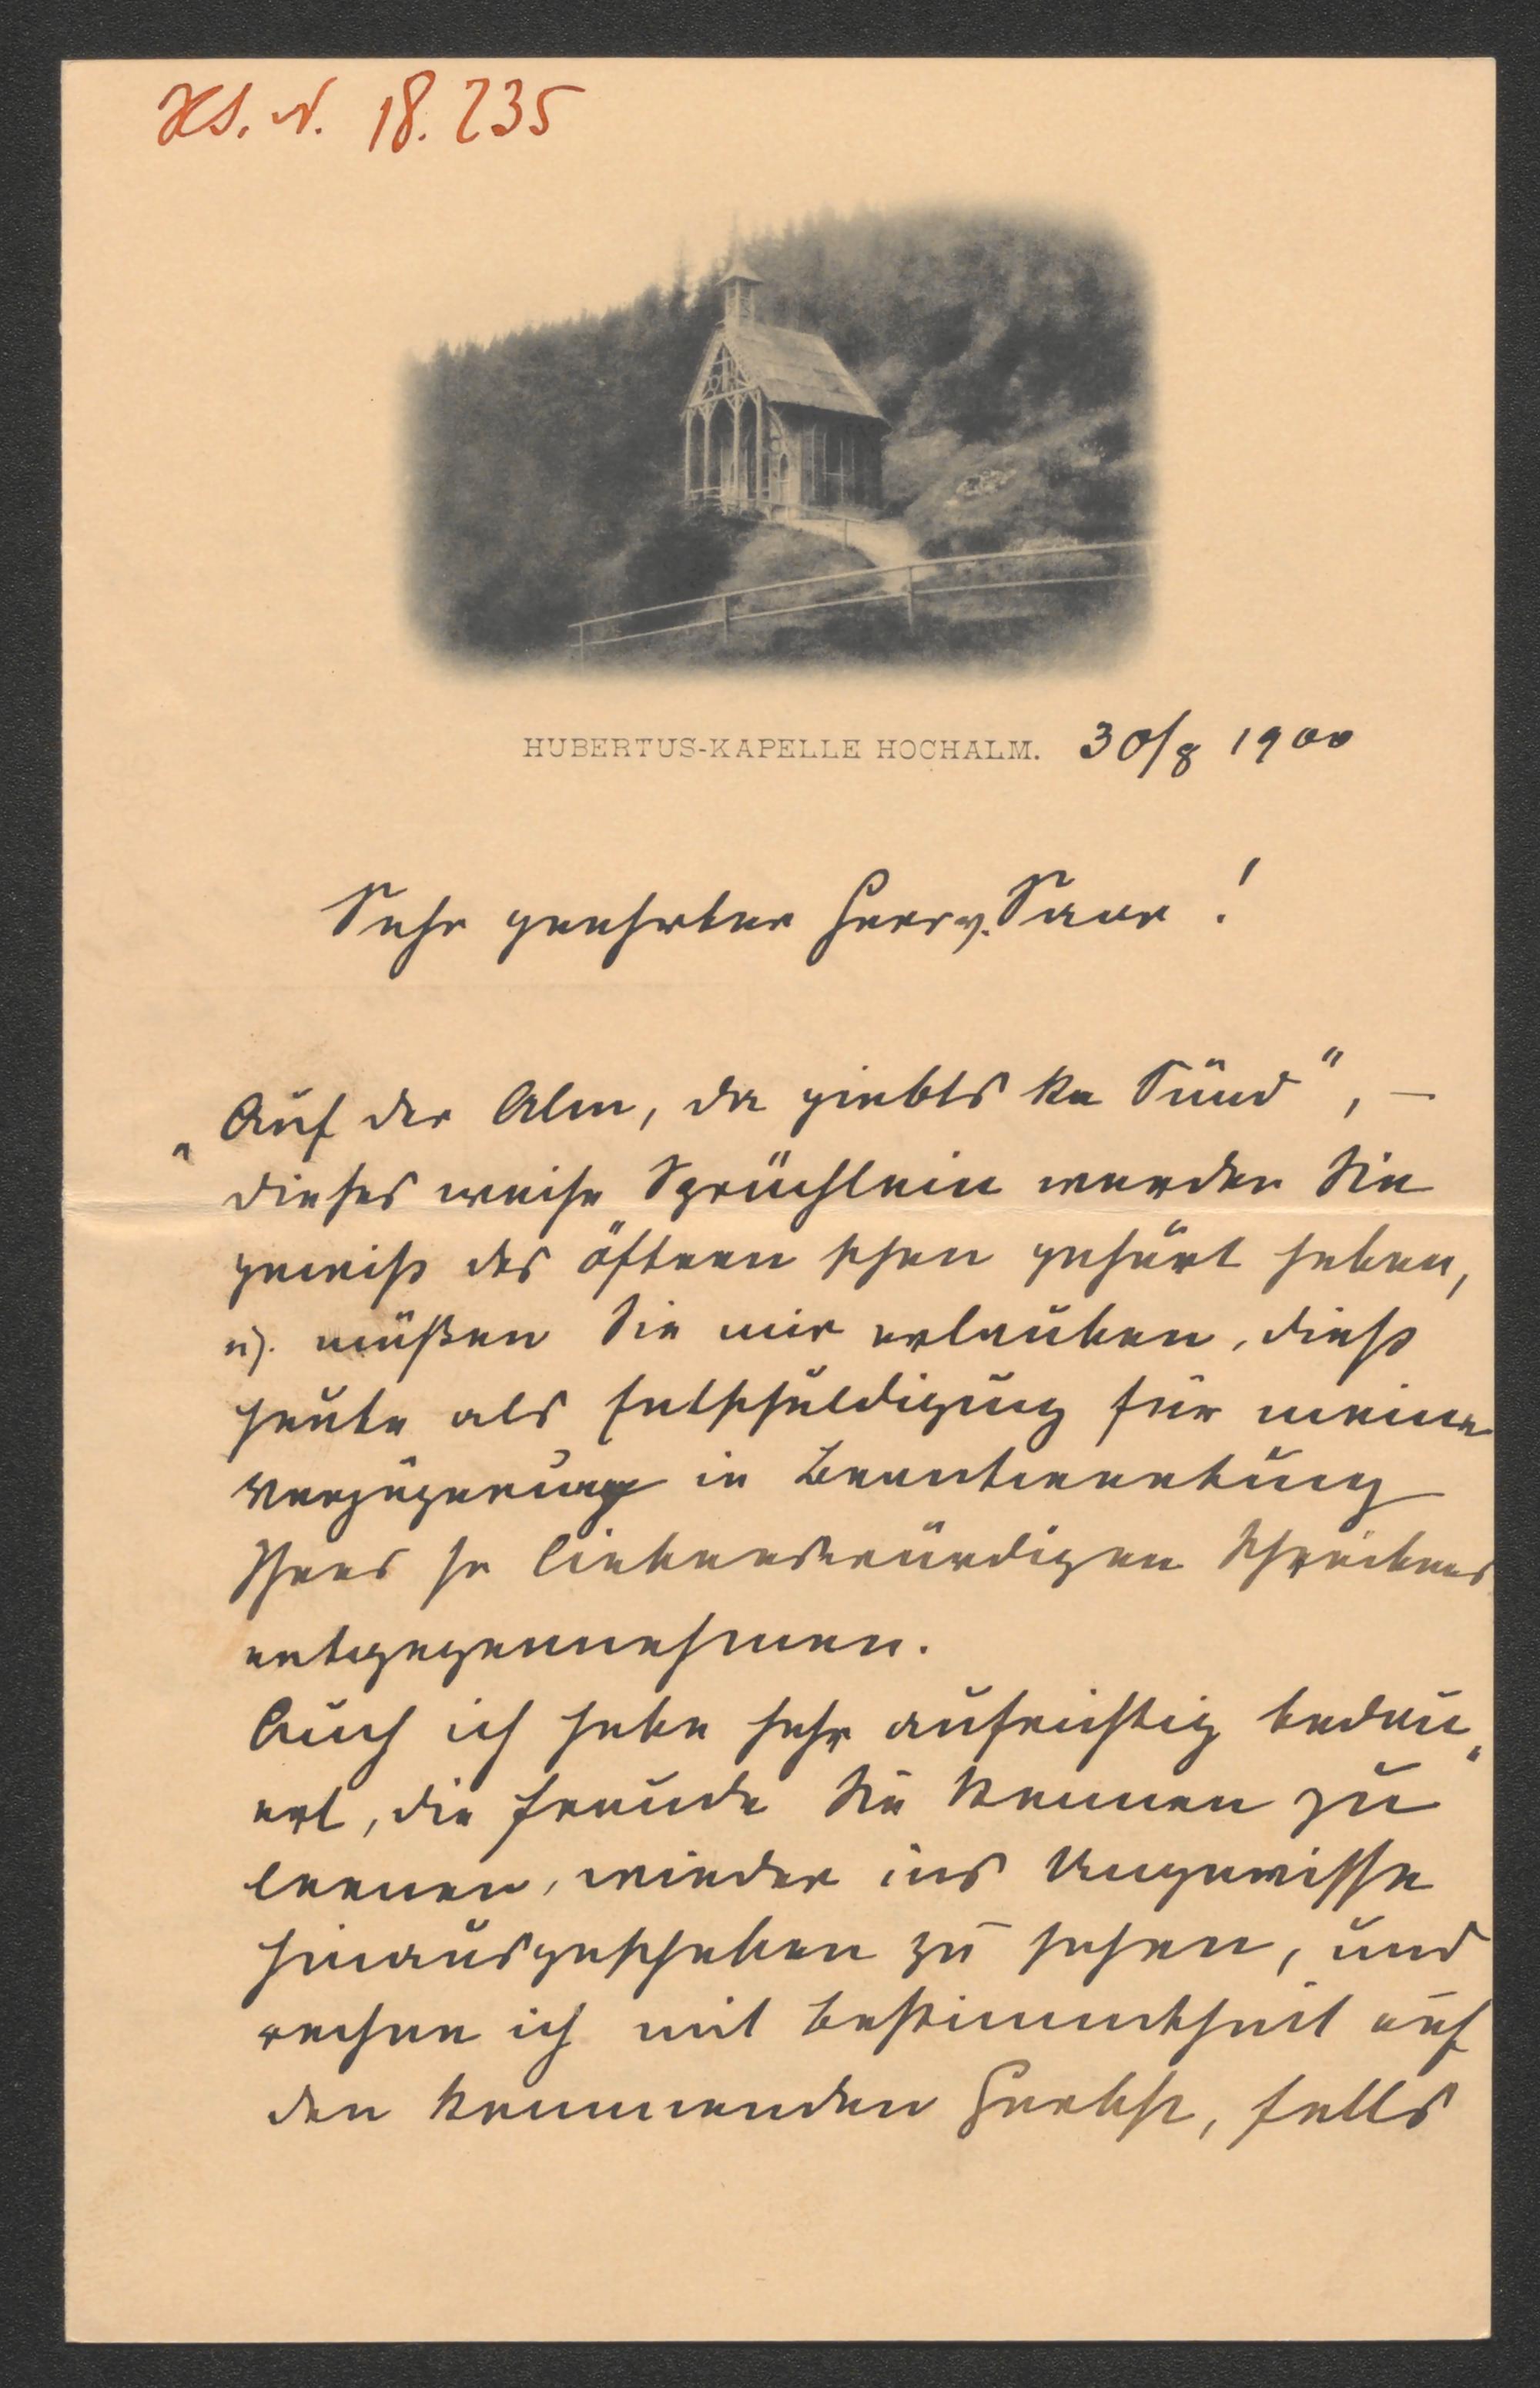 HS. N. 18.235
HUBERTUS-KAPELLE HOCHALM. 30/8 1900
Sehr geehrter Herr v. Saar!
„Auf der Alm, da giebts ka Sünd", –
dieses weise Sprüchlein werden Sie
gewiß des öftern schon gehört haben,
u. müßen Sie mir erlauben, dieß
heute als Entschuldigung für meine
Verzögerung in Beantwortung
Ihres so liebenswürdigen Schreibens
entgegennehmen.
Auch ich habe sehr aufrichtig bedau„
ert, die Freude Sie kennen zu
lernen, wieder ins Ungewisse
hinausgeschoben zu sehen, und
rechne ich mit Bestimmtheit auf
den kommenden Herbst, falls